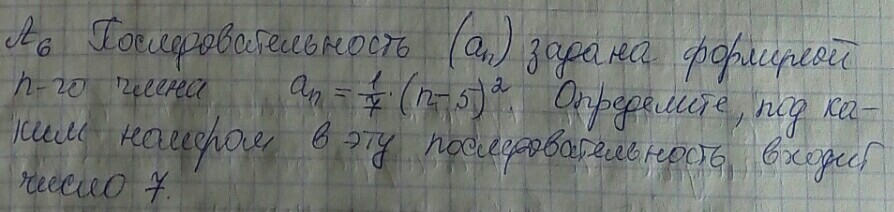 А6 Последовательность (aₙ) задана формулой
n-го члена aₙ = 1/7 · (n-5)². Определите, под ка-
ким номером в эту последовательность входит
число 7.